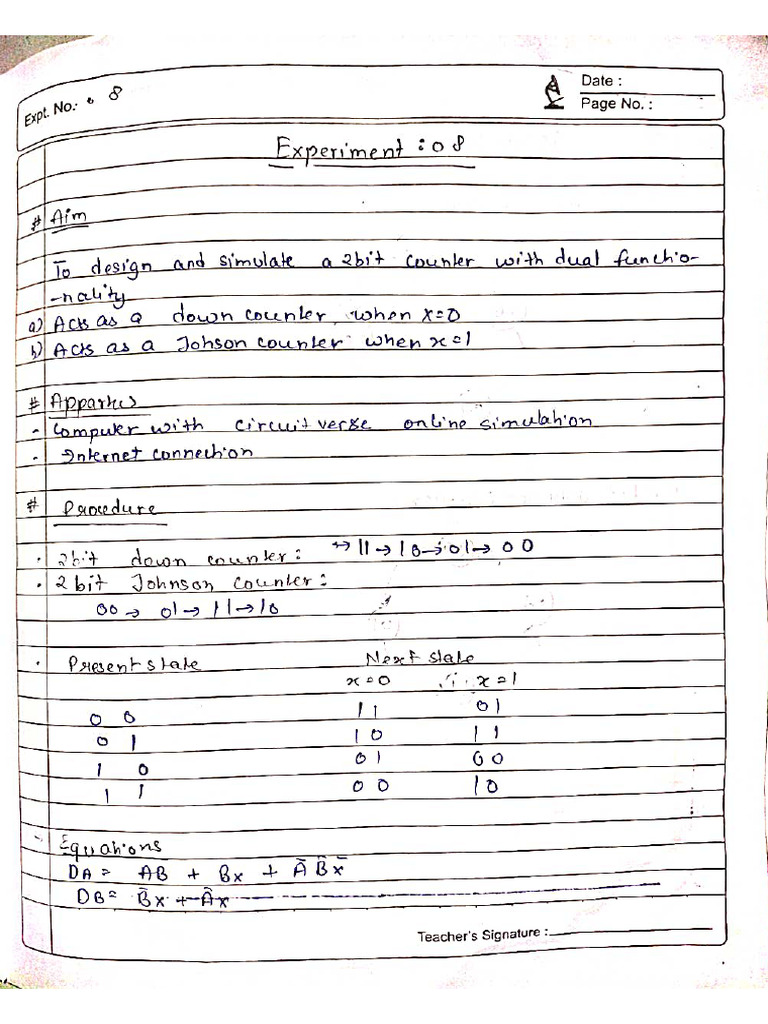 Expt. No.: 8
Date :
Page No. :
Experiment : 08
# Aim
To design and simulate a 2bit counter with dual functio-
-nality
a) Acts as a down counter when x=0
b) Acts as a Johson counter when x=1
# Appartus
- Computer with circuit verse online simulation
- Internet connection
# Procedure
• 2bit down counter: ↔ 11→10→01→00
• 2 bit Johnson counter:
00→ 01→11→10
• Present state Next state
x=0 x=1
0 0 11 01
0 1 10 11
1 0 01 00
1 1 00 10
- Equations
DA= AB + Bx + A̅ B̅ x̅
DB= B̅x + A̅x
Teacher's Signature :